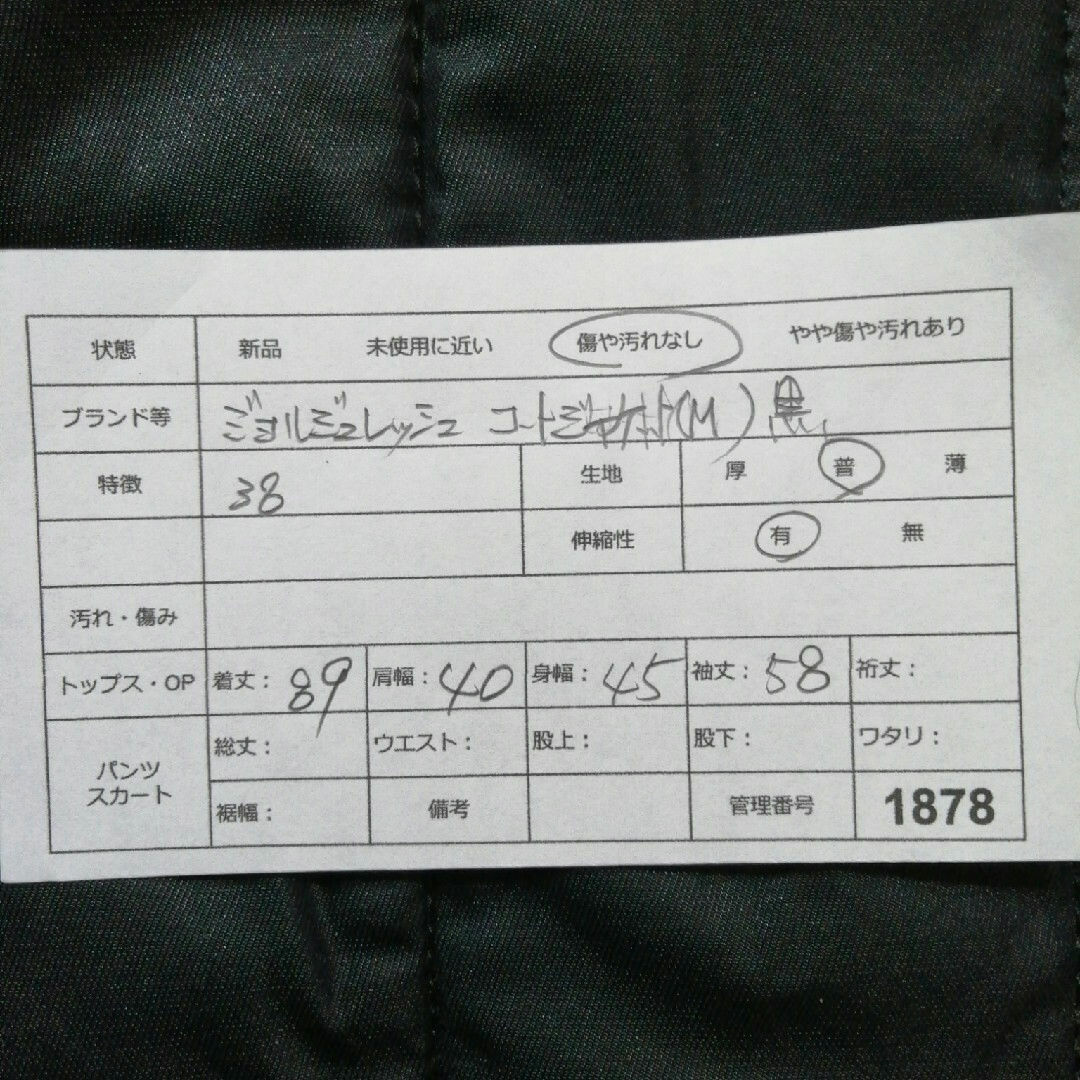 状態 新品 未使用に近い 傷や汚れなし やや傷や汚れあり
ブランド等 ジョルジュレッシュ コート (M) 黒
特徴 38 生地 厚 普 薄
伸縮性 有 無
汚れ・傷み
トップス・OP 着丈: 89 肩幅: 40 身幅: 45 袖丈: 58 裄丈:
パンツ スカート 総丈: ウエスト: 股上: 股下: ワタリ:
裾幅: 備考 管理番号 1878